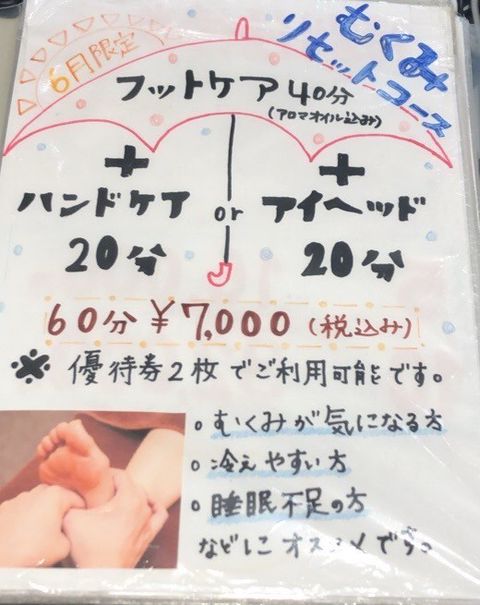 6月限定
むくみ
リセットコース
フットケア 40分
(アロマオイル込み)
+
ハンドケア
20分
or
+
アイヘッド
20分
60分 ¥7,000 (税込み)
※ 優待券2枚でご利用可能です。
。むくみが気になる方
。冷えやすい方
。睡眠不足の方
などにオススメです。